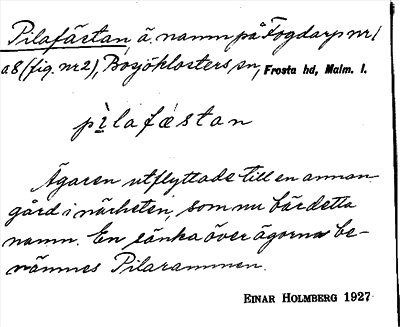 Pilafästan, ä. namn på Fogdarp nr 1
a8 (fig. nr 2), Bosjöklosters sn, Frosta hd, Malm. l.
pìlafǽstan
Ägaren utflyttade till en annan
gård i närheten, som nu bär detta
namn. En sänka över ägorna be-
nämnes Pilarammen.
EINAR HOLMBERG 1927